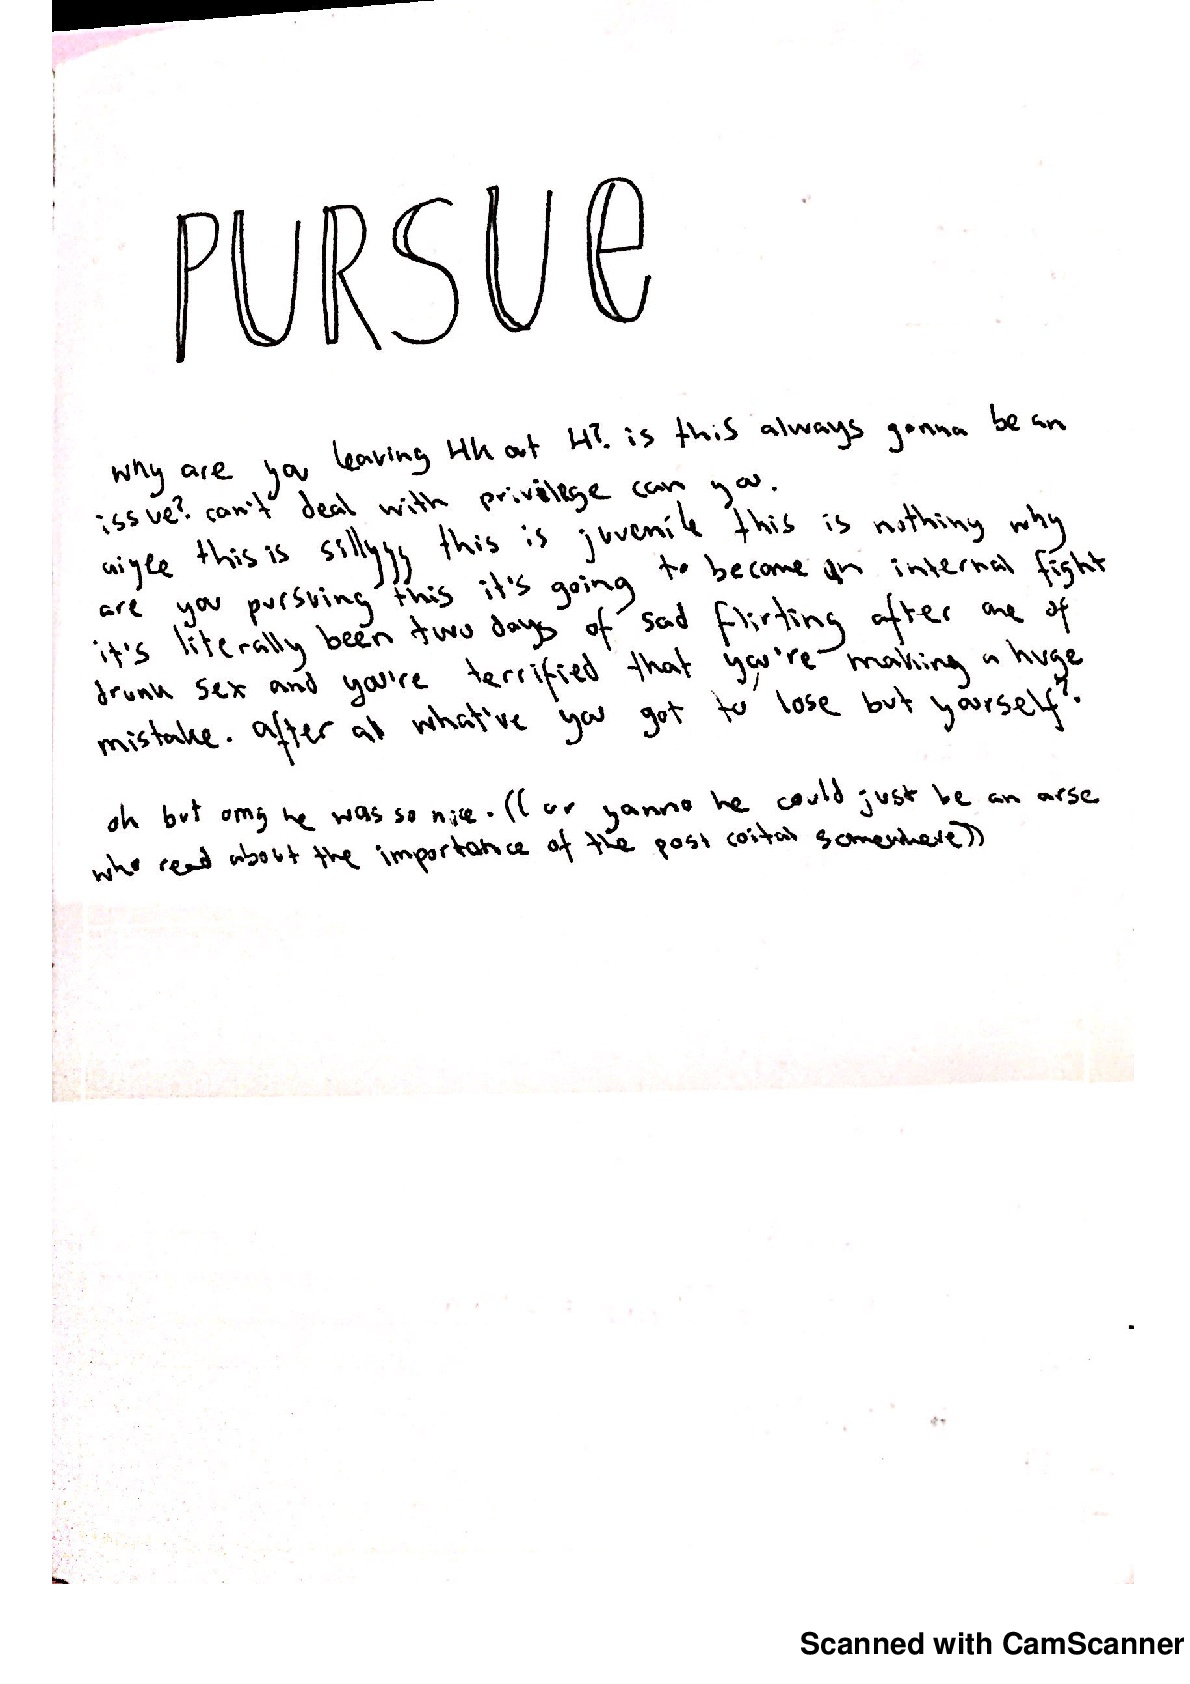 PURSUE
why are you leaving HK at 4? is this always gonna be an
issue? can't deal with privilege can you.
this is sillyyy this is juvenile this is nothing why
are you pursuing this it's going to become an internal fight
it's literally been two days of sad flirting after one of
drunk sex and you're terrified that you're making a huge
mistake. after all what've you got to lose but yourself?
oh but omg he was so nice. ((or yanno he could just be an arse
who read about the importance of the post coital somewhere))
Scanned with CamScanner